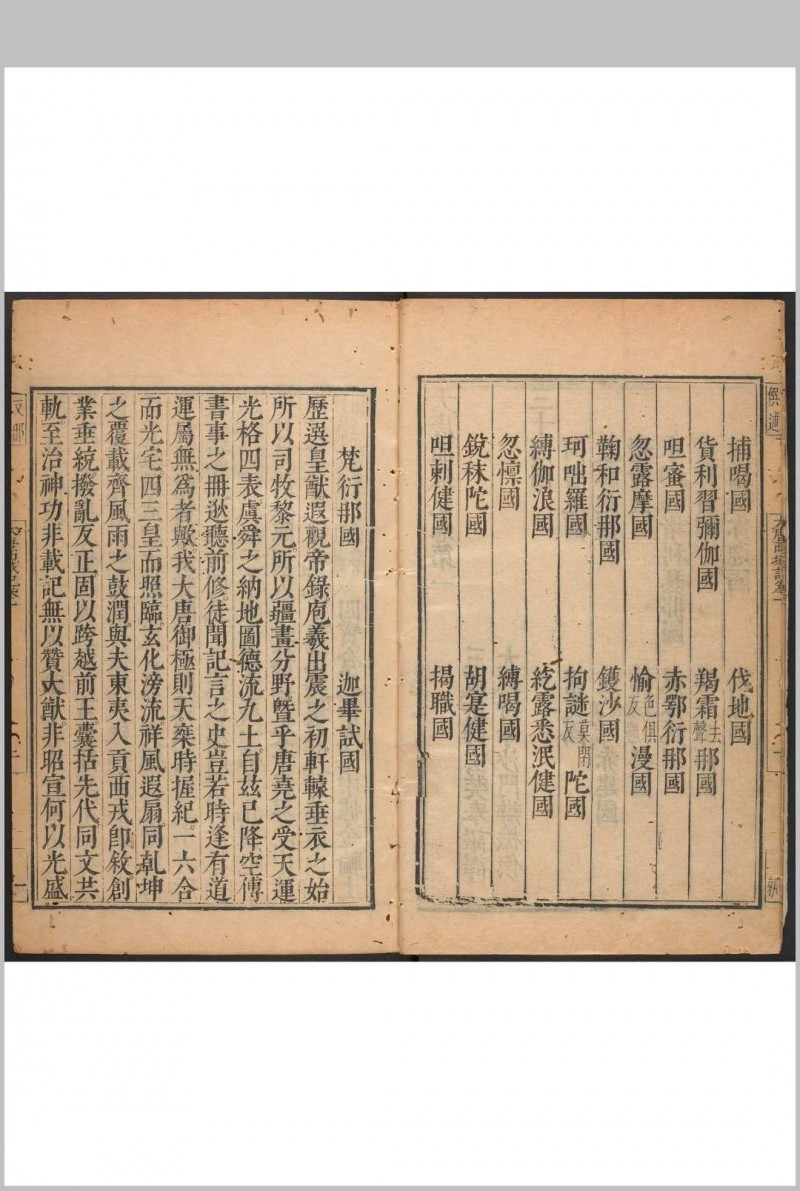 捕喝國 伐地國
貨利習彌伽國 羯霜去聲那國
呾蜜國 赤鄂衍那國
忽露摩國 愉色俱反漫國
鞠和衍那國 鑊沙國
珂咄羅國 拘謎莫閉反陀國
縛伽浪國 紇露悉泯健國
忽懍國 縛喝國
銳秣陀國 胡寔健國
呾剌健國 揭職國
梵衍那國 迦畢試國
歷選皇猷遐觀帝錄庖羲出震之初軒轅垂衣之始
所以司牧黎元所以疆畫分野曁乎唐堯之受天運
光格四表虞舜之納地圖德流九土自茲已降空傳
書事之冊逖聽前修徒聞記言之史豈若時逢有道
運屬無爲者歟我大唐御極則天乘時握紀一六合
而光宅四三皇而照臨玄化滂流祥風遐扇同乹坤
之覆載齊風雨之鼓潤與夫東夷入貢西戎即敘創
業垂統撥亂反正固以跨越前王囊括先代同文共
軌至治神功非載記無以贊大猷非昭宣何以光盛